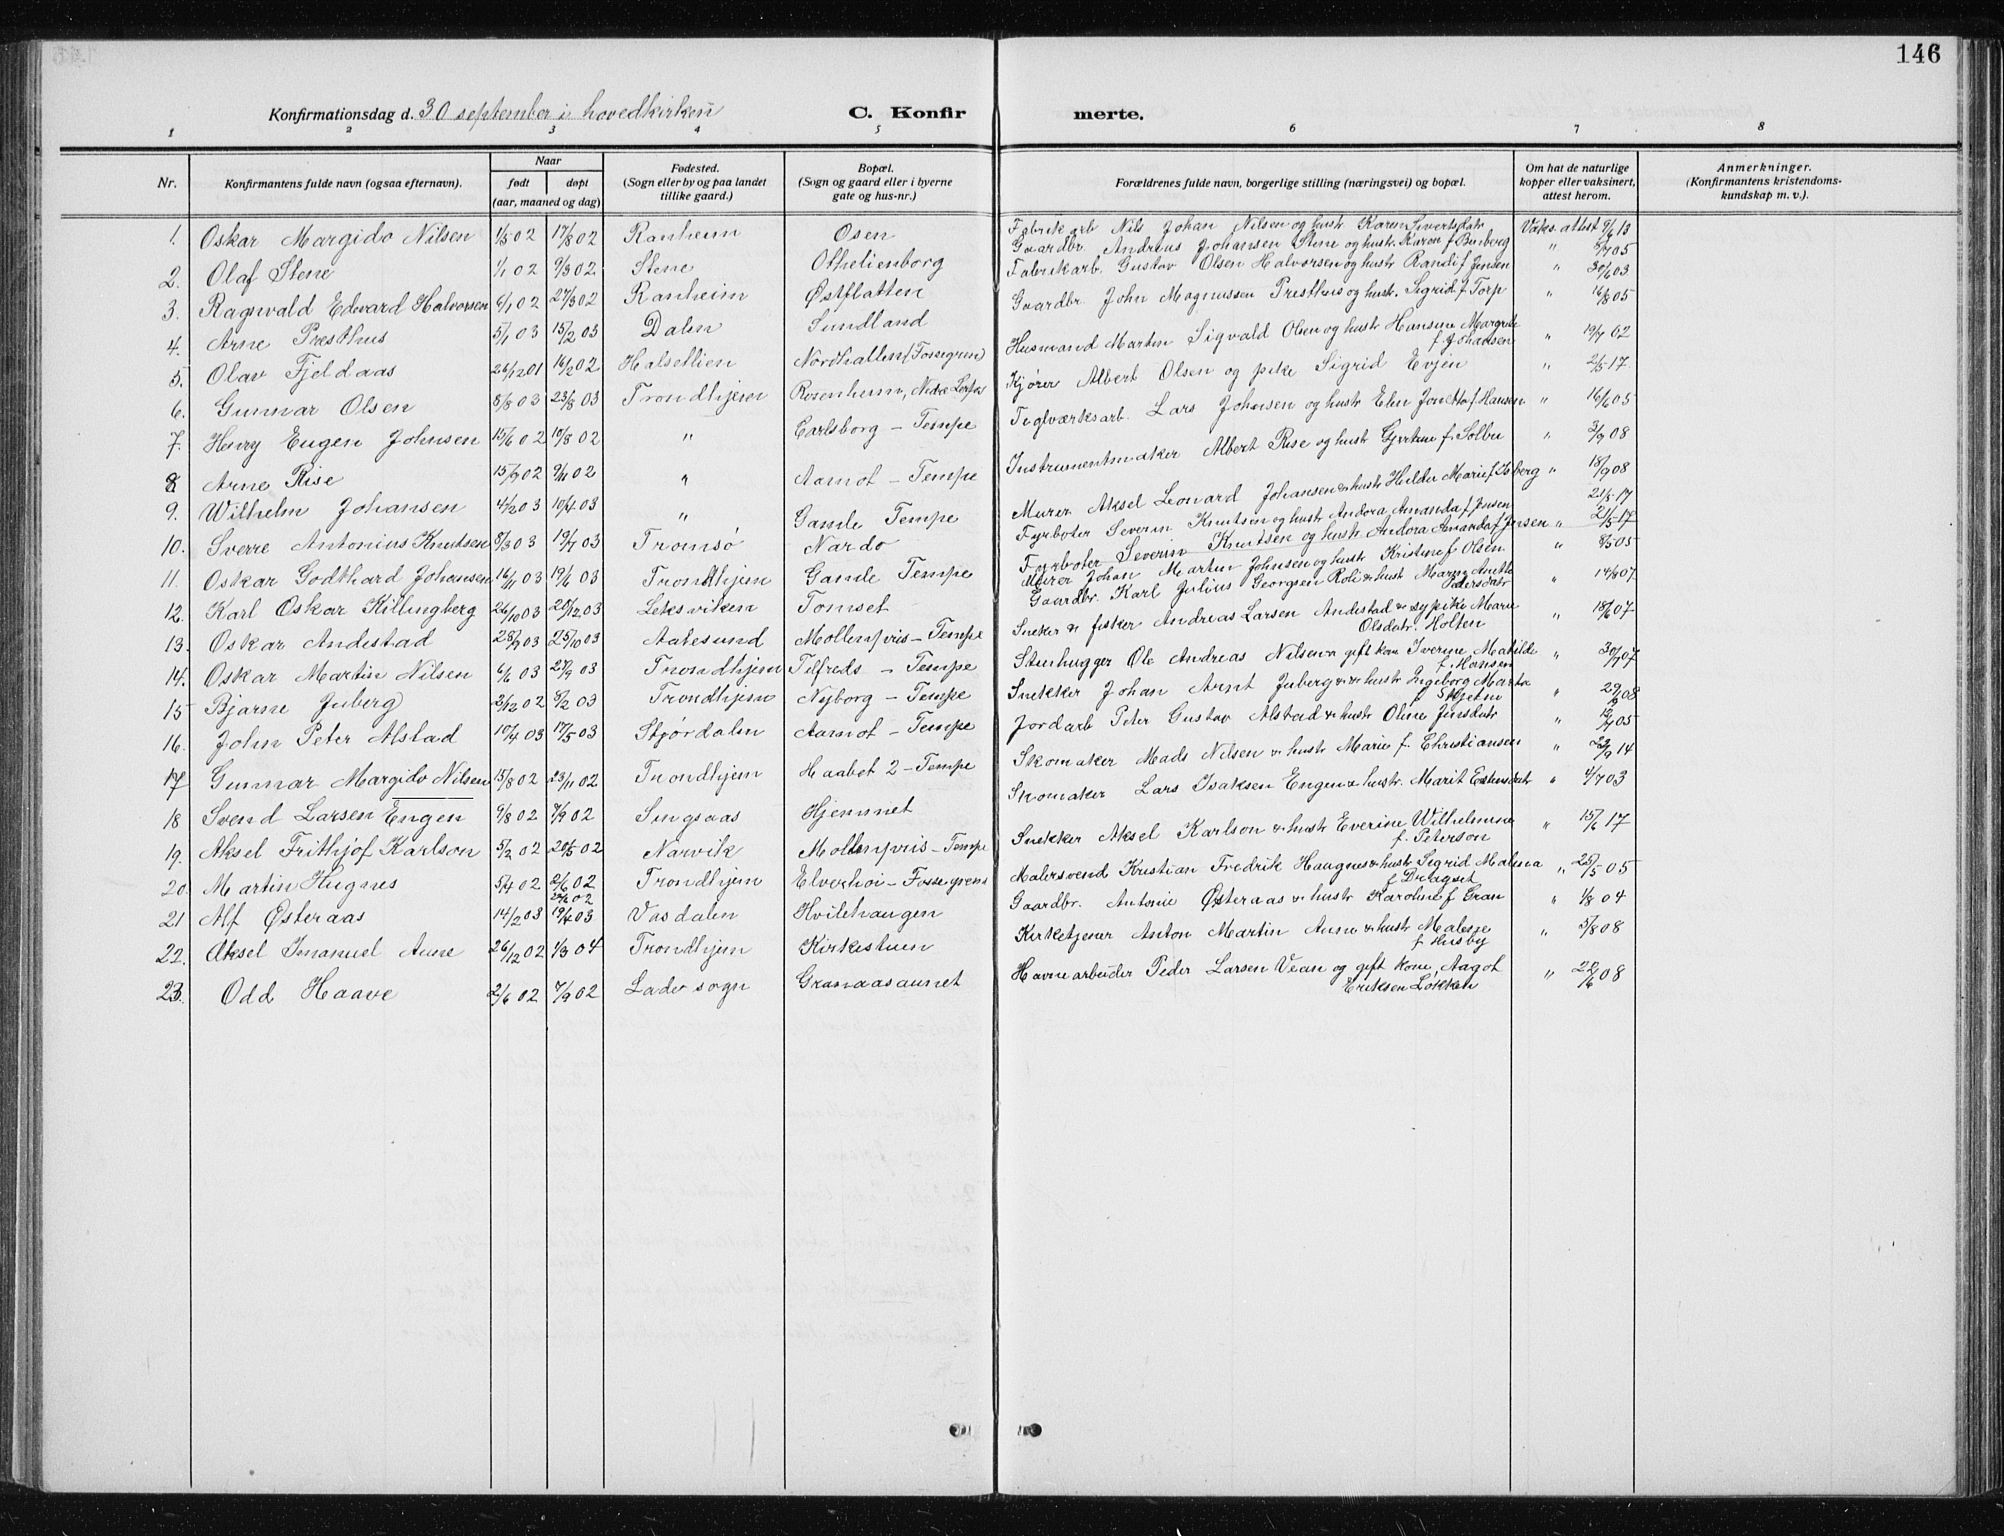 146
Konfirmationsdag d. 30 september i hovedkirken
C. Konfir merte.
1 2 3 4 5 6 7 8
Nr. Konfirmantens fulde navn (ogsaa efternavn). Naar født døpt (aar, maaned og dag) Fødested. (Sogn eller by og paa landet tillike gaard.) Bopæl. (Sogn og gaard eller i byerne gate og hus-nr.) Forældrenes fulde navn, borgerlige stilling (næringsvei) og bopæl. Om hat de naturlige kopper eller vaksinert, attest herom. Anmerkninger. (Konfirmantens kristendoms-kundskap m. v.).
1. Oskar Margido Nilsen 1/5 02 17/8 02 Ranheim Osen Fabrikarb Nils Johan Nilsen og hustr Karen Sivertsdatr Vaks. attest 9/6 13
2. Olaf Stene 1/1 02 9/3 02 Stene Othelienborg Gaardbr. Andreas Johansen Stene og hustr. Karen f. " 8/9 05
3. Ragnvald Edvard Halvorsen 6/1 02 27/3 02 Ranheim Østflatten Fabrikarb. Gustav Olsen Halvorsen og hustr Randi f Jensen " 30/6 03
4. Arne Presthus 5/1 03 15/2 03 Dalen Sundland Gaardbr. John Magnussen Presthus og hust. Sigrid f Torp " 16/8 05
5. Olav Fjeldaas 26/12 01 16/2 02 Halsetlien Nordhallen (Fossegrun) Husmand Martin Sigvald Olsen og hustr Hansine Margrete f Johansen " 19/7 02
6. Gunnar Olsen 8/8 03 23/8 03 Trondhjem Rosenheim, Nedre Kjører Albert Olsen og pike Sigrid Evjen " 2/5 17
7. Henry Eugen Johnsen 15/6 02 10/8 02 " Carlsborg - Tempe Teglværksarb. Lars Johnsen og hustr Elen f. Hansen " 16/6 05
8. Arne Rise 15/9 02 9/11 02 " Aamot - Tempe Instrumentmaker Albert Rise og hustr Gjertine f. Solbu " 3/9 08
9. Wilhelm Johansen 4/2 03 10/4 03 " Gamle Tempe Murer Aksel Leonard Johansen & hustr Hulda Marie f. " 18/9 08
10. Sverre Antonius Knutsen 8/3 03 19/7 03 Tromsø Nardo Fyrbøter Severin Knutsen og hustr Andora Amanda f Jensen 21/5 17
Fyrbøter Severin Knutsen og hustr Andora Amanda f Jensen " 21/5 17
11. Oskar Godthard Johansen 16/1 03 19/6 03 Trondhjem Gamle Tempe Murer Johan Martin Johnsen og hustr Kristine f Olsen " 8/5 05
12. Karl Oskar Killingberg 26/10 03 28/12 03 Leksviken Tomset Gaardbr. Karl Julius Georgsen Roli & hust Maren Anette Pedersdatr " 14/6 07
13. Oskar Andestad 28/9 03 25/10 03 Aalesund Mollenpris - Tempe Sneker & fisker Andreas Larsen Andestad & sypike Marie Olsdatr. Holten " 18/6 07
14. Oskar Martin Nilsen 6/6 03 27/9 03 Trondhjem Tilfreds - Tempe Stenhugger Ole Andreas Nilsen & gift kone Iverine Matilde f. Hansen " 30/7 07
15 Bjarne Juberg 2/12 02 8/2 03 Trondhjem Nyborg - Tempe Snekker Johan Arnt Juberg & hustr Ingeborg Marta f Skjetne " 29/9 08
16. John Peter Alstad 10/4 03 17/5 03 Stjørdalen Aamot - Tempe Jordarb Peter Gustav Alstad & hustr Oline Jensdatr " 12/7 05
17 Gunnar Margido Nilsen 15/8 02 23/11 02 Trondhjem Haabet 2 - Tempe Skomaker Mads Nilsen & hustr Marie f. Christiansen " 23/9 14
18 Svend Larsen Engen 9/8 02 7/9 02 Singsaas Hjemmet Skomaker Lars Isaksen Engen & hustr. Marit Estensdatr " 4/7 03
19. Aksel Frithjof Karlson 5/2 02 20/5 02 Narvik Mollenpris - Tempe Snekker Aksel Karlson & hustr Everine Wilhelmine f. Peterson " 15/6 17
20. Martin Hugnes 5/4 02 2/6 02 Trondhjem Elverhøi - Fossegrend Malersvend Kristian Fredrik Haugnes & hustr Sigrid Malena f Dragset " 25/5 05
21 Alf Østeraas 14/2 03 19/4 03 Vasdalen Hvilehaugen Gaardbr. Antonie Østeraas & hustr Karoline f. Gran " 1/8 04
22. Aksel Imanuel Aune 26/12 02 1/3 04 Trondhjem Kirkestuen Kirketjener Anton Martin Aune & hustr Malene f Husby " 5/8 08
23. Odd Haave 2/6 02 7/9 02 Lade sogn Granaasaunet Havnearbeider Peder Larsen Vean og gift kone, Aagot Eriksen Løkken " 22/6 08